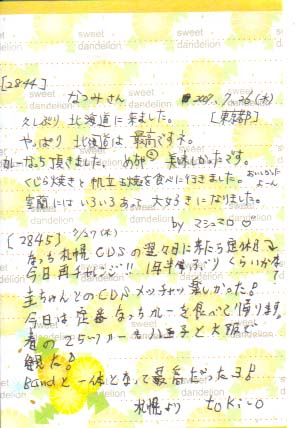 sweet dandelion sweet dandelion
[2844] なつみさん 2007.7.26(木)
久しぶり北海道に来ました。 [東京都]
やっぱり北海道は最高ですネ。
カレーなっち頂きました。 美味しかったです。
くじら焼きと帆立も焼を食べに行きました。 おいしかったよーん
室蘭にはいろいろあって大好きになりました。
by マシュマロ♡
[2845] 7/27(木)
なっち札幌CDSの翌々日に来たら定休日
今日再チャレンジ!! 1年半ぶりくらいかな?
圭ちゃんとのCDSメッチャッ楽しかった♪
今日は定番なっちカレーを食べて帰ります。
春の25ツアーも八王子と大阪で
観た♪
Bandと一体となって最高だったヨ♪
札幌より tokio